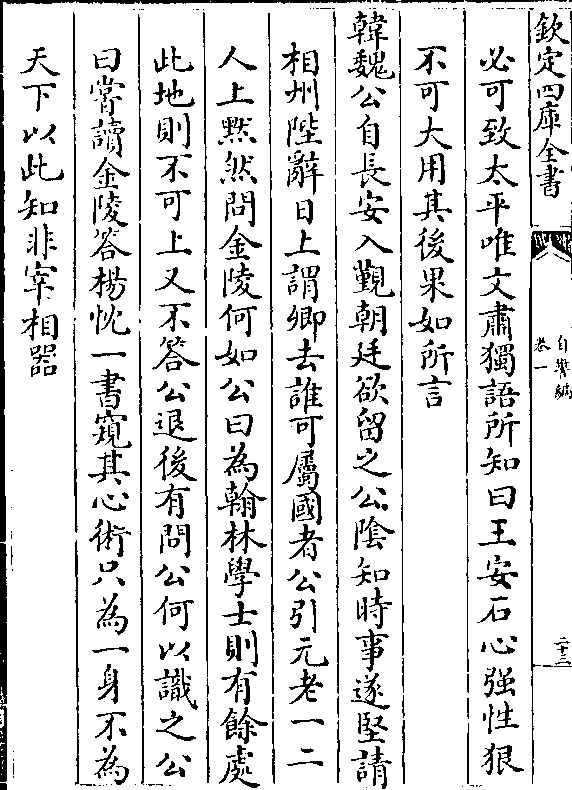 欽定四庫全書
自警編
卷一
二十三
必可致太平唯文肅獨語所知曰王安石心强性狠
不可大用其後果如所言
韓魏公自長安入覲朝廷欲留之公陰知時事遂堅請
相州陛辭日上謂卿去誰可屬國者公引元老一二
人上黙然問金陵何如公曰為翰林學士則有餘處
此地則不可上又不答公退後有問公何以識之公
曰嘗讀金陵答楊忱一書窺其心術只為一身不為
天下以此知非宰相器